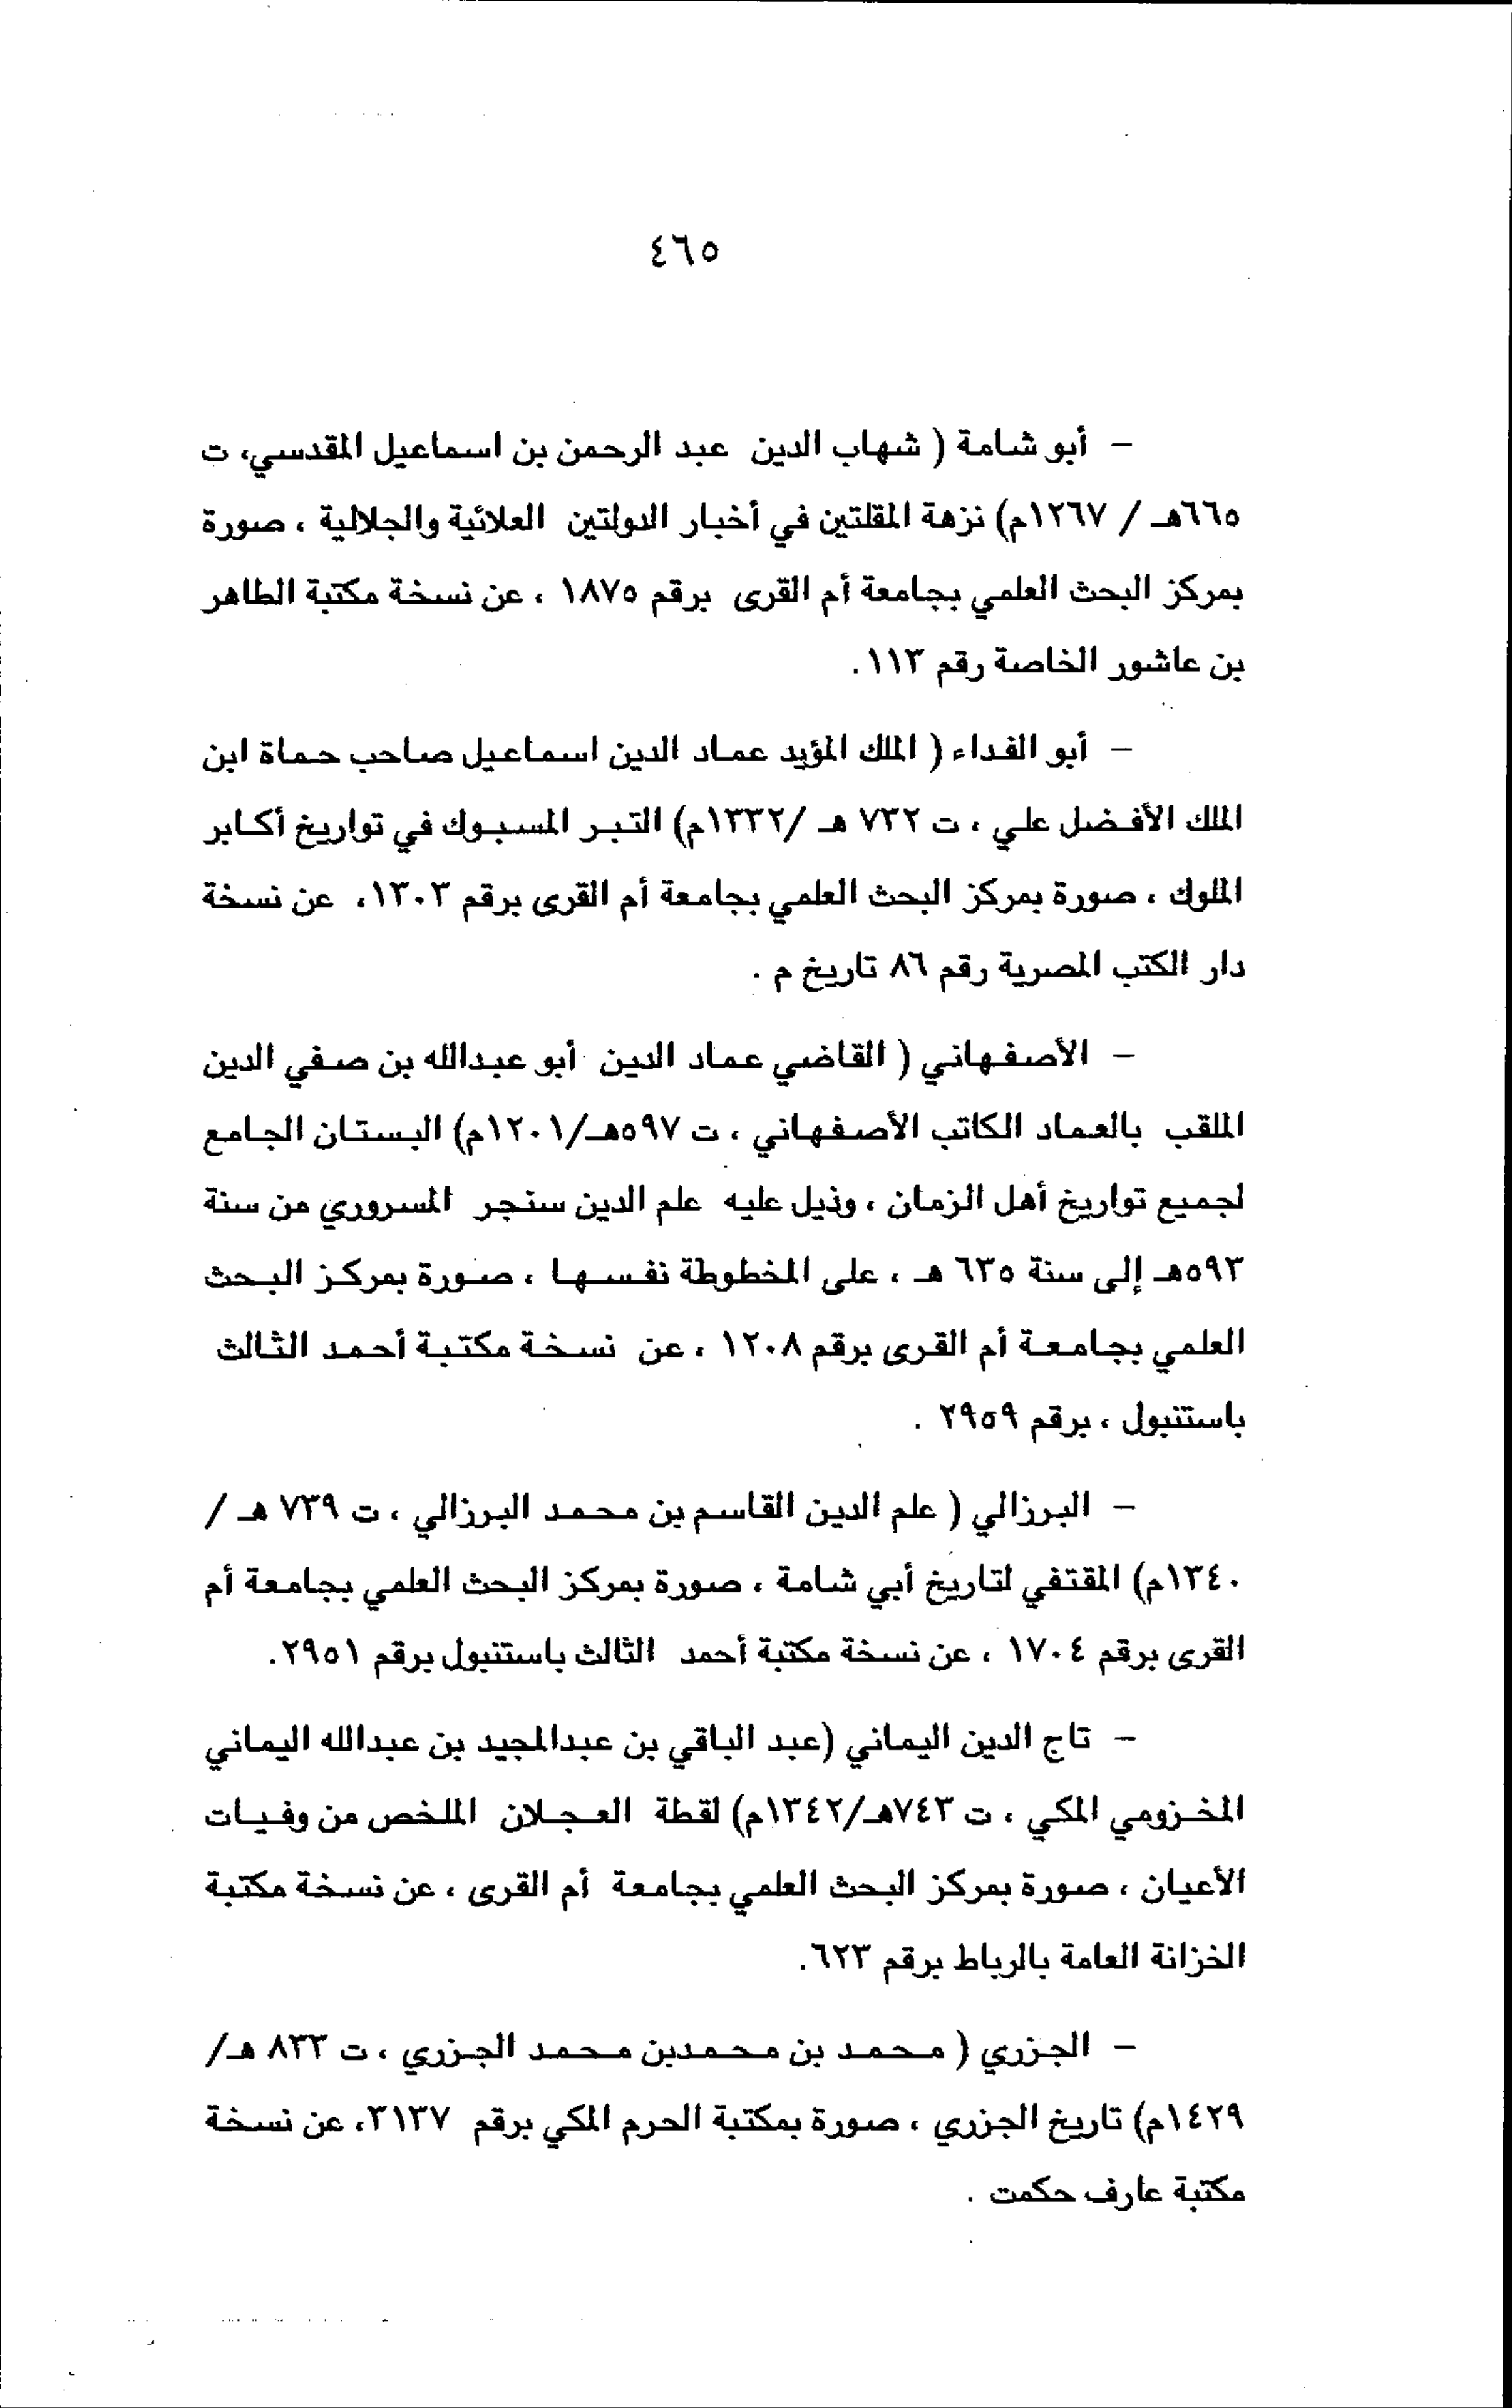 ٤٦٥
– أبو شامة ( شهاب الدين عبد الرحمن بن اسماعيل المقدسي، ت
٦٦٥هـ / ١٢٦٧م) نزهة المقلتين في أخبار الدولتين العلائية والجلالية ، صورة
بمركز البحث العلمي بجامعة أم القرى برقم ١٨٧٥ ، عن نسخة مكتبة الطاهر
بن عاشور الخاصة رقم ١١٣.
– أبو الفداء ( الملك المؤيد عماد الدين اسماعيل صاحب حماة ابن
الملك الأفضل علي ، ت ٧٣٢ هـ /١٣٣٢م) التبر المسبوك في تواريخ أكابر
الملوك ، صورة بمركز البحث العلمي بجامعة أم القرى برقم ١٣٠٣، عن نسخة
دار الكتب المصرية رقم ٨٦ تاريخ م .
– الأصفهاني ( القاضي عماد الدين أبو عبدالله بن صفي الدين
الملقب بالعماد الكاتب الأصفهاني ، ت ٥٩٧هـ/١٢٠١م) البستان الجامع
لجميع تواريخ أهل الزمان ، وذيل عليه علم الدين سنجر المسروري من سنة
٥٩٣هـ إلى سنة ٦٣٥ هـ ، على المخطوطة نفسها ، صورة بمركز البحث
العلمي بجامعة أم القرى برقم ١٢٠٨ ، عن نسخة مكتبة أحمد الثالث
باستنبول ، برقم ٢٩٥٩ .
– البرزالي ( علم الدين القاسم بن محمد البرزالي ، ت ٧٣٩ هـ /
١٣٤٠م) المقتفي لتاريخ أبي شامة ، صورة بمركز البحث العلمي بجامعة أم
القرى برقم ١٧٠٤ ، عن نسخة مكتبة أحمد الثالث باستنبول برقم ٢٩٥١.
– تاج الدين اليماني (عبد الباقي بن عبدالمجيد بن عبدالله اليماني
المخزومي المكي ، ت ٧٤٣هـ/١٣٤٢م) لقطة العجلان الملخص من وفيات
الأعيان ، صورة بمركز البحث العلمي بجامعة أم القرى ، عن نسخة مكتبة
الخزانة العامة بالرباط برقم ٦٢٣.
– الجزري ( محمد بن محمدبن محمد الجزري ، ت ٨٣٣ هـ/
١٤٢٩م) تاريخ الجزري ، صورة بمكتبة الحرم المكي برقم ٣١٣٧، عن نسخة
مكتبة عارف حكمت .